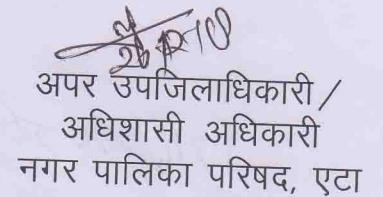 अपर उपजिलाधिकारी /
अधिशासी अधिकारी
नगर पालिका परिषद, एटा